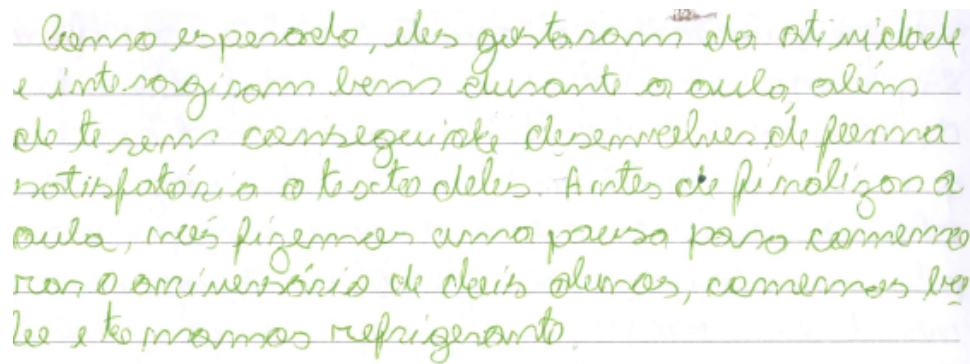 Como esperado, eles gostaram da atividade
e interagiram bem durante a aula, além
de terem conseguido desenvolver de forma
satisfatória o texto deles. Antes de finalizar a
aula, nós fizemos uma pausa para comemo
rar o aniversário de dois alunos, comemos bo
lo e tomamos refrigerante.